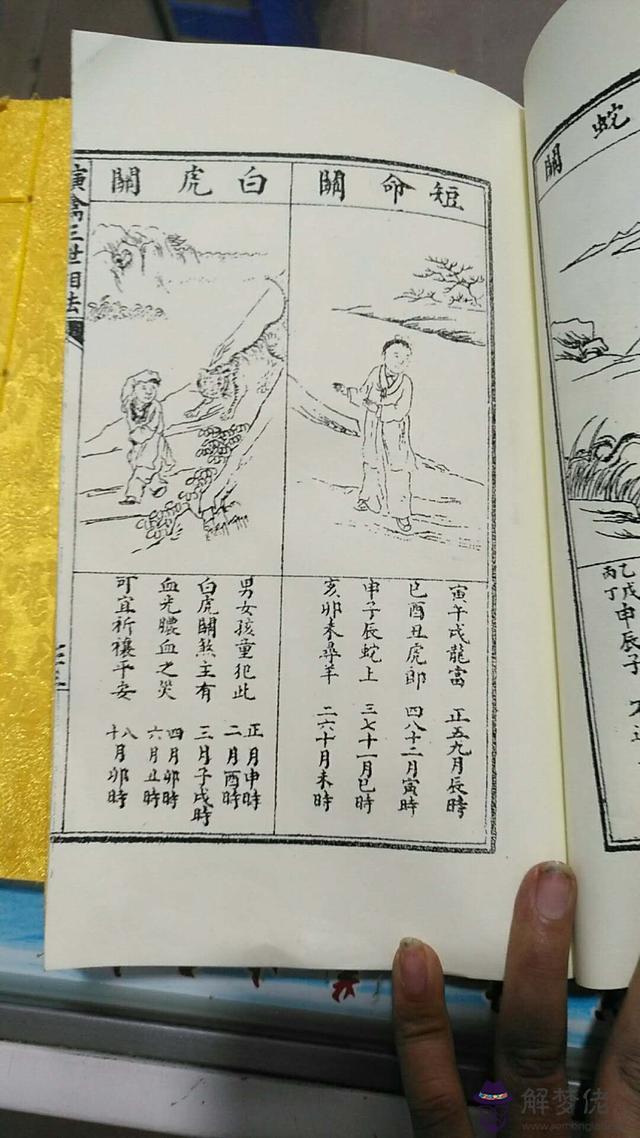 短命關
寅午戌龍當 正五九月辰時
巳酉丑虎鄉 四八十二月寅時
申子辰蛇上 三七十一月巳時
亥卯未尋羊 二六十月未時
白虎關
男女孩童犯此
白虎關煞主有
血光膿血之災
可宜祈禳平安
正月申時
二月酉時
三月子戌時
四月卯時
六月丑時
八月卯時
演禽三世相法
蛇關
乙戊申辰子
丙丁
解梦佬